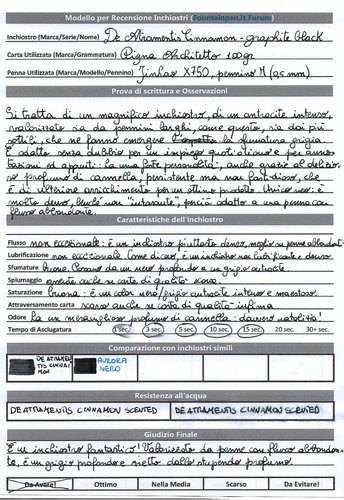 Modello per Recensione Inchiostri (Fountainpen.it Forum)
Inchiostro (Marca/Serie/Nome) De Atramentis Cinnamon - graphite black
Carta Utilizzata (Marca/Grammatura) Pigna Architetto 100gr
Penna Utilizzata (Marca/Modello/Pennino) Jinhao X750, pennino M (0,5 mm)
Prova di scrittura e Osservazioni
Si tratta di un magnifico inchiostro, di un antracite intenso,
valorizzato sia da pennini larghi, come questo, sia dai più
sottili, che ne fanno emergere la sfumatura grigia.
È adatto senza dubbio per un impiego quotidiano e per anno-
tazioni ed appunti: ha una forte personalità, anche grazie al delizio-
so profumo di cannella, persistente ma non fastidioso, che
è di ulteriore arricchimento per un ottimo prodotto. Unico neo: è
molto denso, benché non "intasante", perciò adatto a una penna con
flusso abbondante.
Caratteristiche dell'inchiostro
Flusso non eccezionale: è un inchiostro piuttosto denso, meglio su penne abbondanti
Lubrificazione non eccezionale. Come dicevo, è un inchiostro non lubrificante e denso.
Sfumature buone. Corrono da un nero profondo a un grigio antracite.
Spiumaggio assente anche su carta di qualità scarsa.
Saturazione buona: è un color nero/grigio antracite intenso e maestoso.
Attraversamento carta scarso anche su carta di qualità infima
Odore ha un meraviglioso profumo di cannella: davvero natalizio!
Tempo di Asciugatura 1 sec. 3 sec. 5 sec. 10 sec. 15 sec. 20 sec. 30+ sec.
Comparazione con inchiostri simili
DE ATRAMEN- AURORA
TIS CINNA- NERO
MON
Resistenza all'acqua
DE ATRAMENTIS CINNAMON SCENTED DE ATRAMENTIS CINNAMON SCENTED
Giudizio Finale
È un inchiostro fantastico! Valorizzato da penne con flusso abbondan-
te, è un grigio profondo e scelto dallo stupendo profumo.
Da Avere! Ottimo Nella Media Scarso Da Evitare!